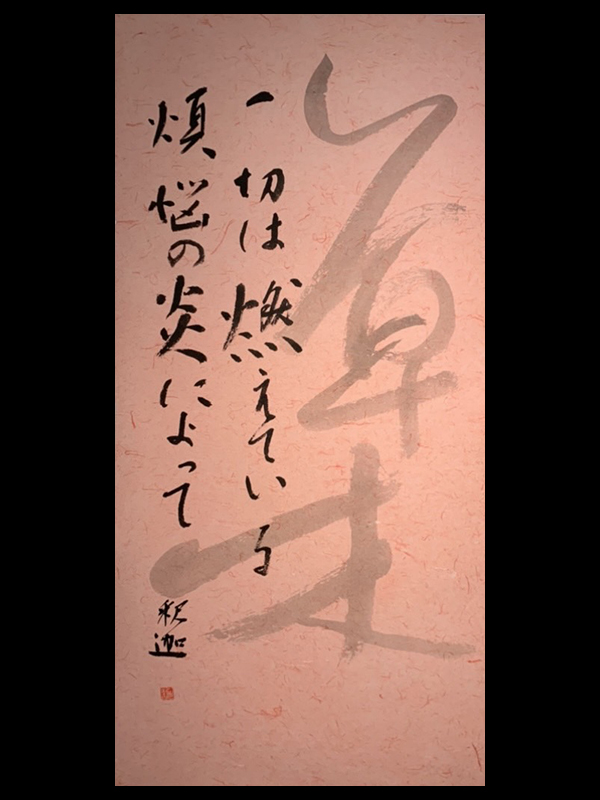 一切は燃えている
煩悩の炎によって
釈迦